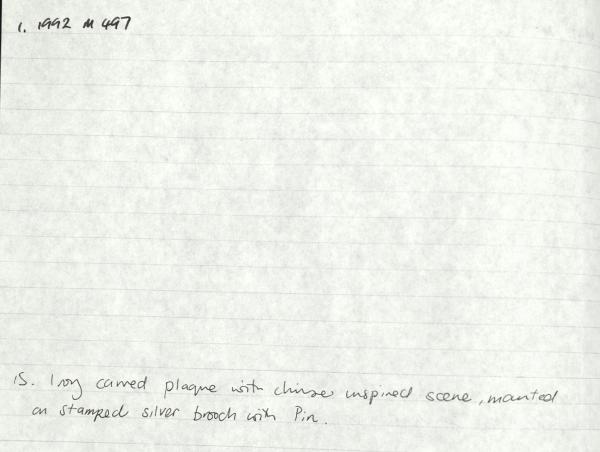 1. 1992 M 497
15. Ivory carved plaque with chinse inspired scene, mounted
on stamped silver brooch with Pin.